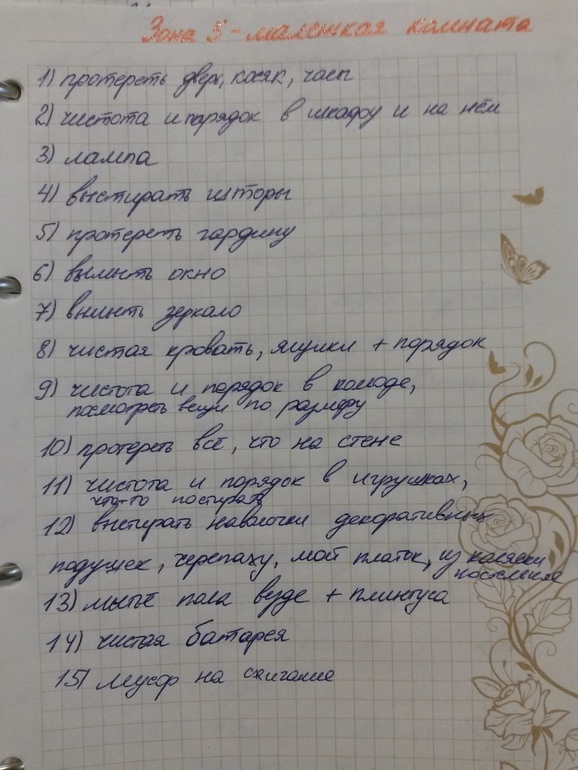 Зона 5 - маленькая комната
1) протереть дверь, косяк, часы
2) чистота и порядок в шкафу и на нём
3) лампа
4) выстирать шторы
5) протереть гардину
6) вымыть окно
7) вымыть зеркало
8) чистая кровать, ящики + порядок
9) чистота и порядок в комоде,
посмотреть вещи по размеру
10) протереть всё, что на стене
11) чистота и порядок в игрушках,
что-то постирать
12) выстирать наволочки декоративных
подушек, черепаху, мой платок, из коляски
постельное
13) мытьё пола везде + плинтуса
14) чистая батарея
15) мусор на сжигание